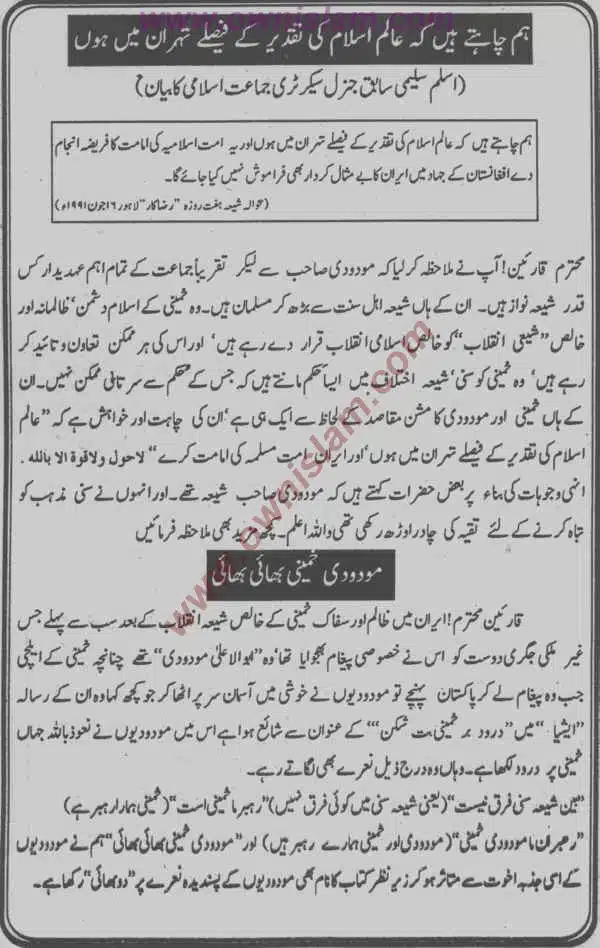 www.ownislam.com
ہم چاہتے ہیں کہ عالم اسلام کی تقدیر کے فیصلے تہران میں ہوں
(اسلم سلیمی سابق جنرل سیکرٹری جماعت اسلامی کا بیان)
ہم چاہتے ہیں کہ عالم اسلام کی تقدیر کے فیصلے تہران میں ہوں اور یہ امت اسلامیہ کی امامت کا فریضہ انجام
دے افغانستان کے جہاد میں ایران کا بے مثال کردار بھی فراموش نہیں کیا جائے گا۔
(بحوالہ شیعہ ہفت روزہ "رضاکار" لاہور ۱۶ جون ۱۹۹۱ء)
محترم قارئین! آپ نے ملاحظہ کر لیا کہ مودودی صاحب سے لیکر تقریباً جماعت کے تمام اہم عہدیدار کس
قدر شیعہ نواز ہیں۔ ان کے ہاں شیعہ اہل سنت سے بڑھ کر مسلمان ہیں۔ وہ خمینی کے اسلام دشمن' ظالمانہ اور
خالص "شیعی انقلاب" کو خالص اسلامی انقلاب قرار دے رہے ہیں' اور اس کی ہر ممکن تعاون و تائید کر
رہے ہیں' وہ خمینی کو سنی' شیعہ اختلاف میں ایسا حکم مانتے ہیں کہ جس کے حکم سے سرتابی ممکن نہیں۔ ان
کے ہاں خمینی اور مودودی کا مشن مقاصد کے لحاظ سے ایک ہی ہے' ان کی چاہت اور خواہش ہے کہ "عالم
اسلام کی تقدیر کے فیصلے تہران میں ہوں' اور ایران امت مسلمہ کی امامت کرے" لاحول ولا قوة الا بالله .
انہی وجوہات کی بناء پر بعض حضرات کہتے ہیں کہ مودودی صاحب شیعہ تھے۔ اور انہوں نے سنی مذہب کو
تباہ کرنے کے لئے تقیہ کی چادر اوڑھ رکھی تھی واللہ اعلم۔ کچھ مزید بھی ملاحظہ فرمائیں
مودودی خمینی بھائی بھائی
قارئین محترم! ایران میں ظالم اور سفاک خمینی کے خالص شیعہ انقلاب کے بعد سب سے پہلے جس
غیر ملکی جگری دوست کو اس نے خصوصی پیغام بھجوایا تھا' وہ "ابوالاعلیٰ مودودی" تھے چنانچہ خمینی کے ایلچی
جب وہ پیغام لے کر پاکستان پہنچے تو مودودیوں نے خوشی میں آسمان سر پر اٹھا کر جو کچھ کہا وہ ان کے رسالہ
"ایشیا" میں "درود بر خمینی بت شکن" کے عنوان سے شائع ہوا ہے اس میں مودودیوں نے نعوذ باللہ جہاں
خمینی پر درود لکھا ہے۔ وہاں وہ درج ذیل نعرے بھی لگاتے رہے۔
"بین شیعہ سنی فرق نیست" (یعنی شیعہ سنی میں کوئی فرق نہیں) "رہبر ما خمینی است" (خمینی ہمارا رہبر ہے)
"رہبران ما مودودی خمینی" (مودودی اور خمینی ہمارے رہبر ہیں) اور "مودودی خمینی بھائی بھائی" ہم نے مودودیوں
کے اسی جذبہ اخوت سے متاثر ہو کر زیر نظر کتاب کا نام بھی مودودیوں کے پسندیدہ نعرے پر "دو بھائی" رکھا ہے۔
www.ownislam.com